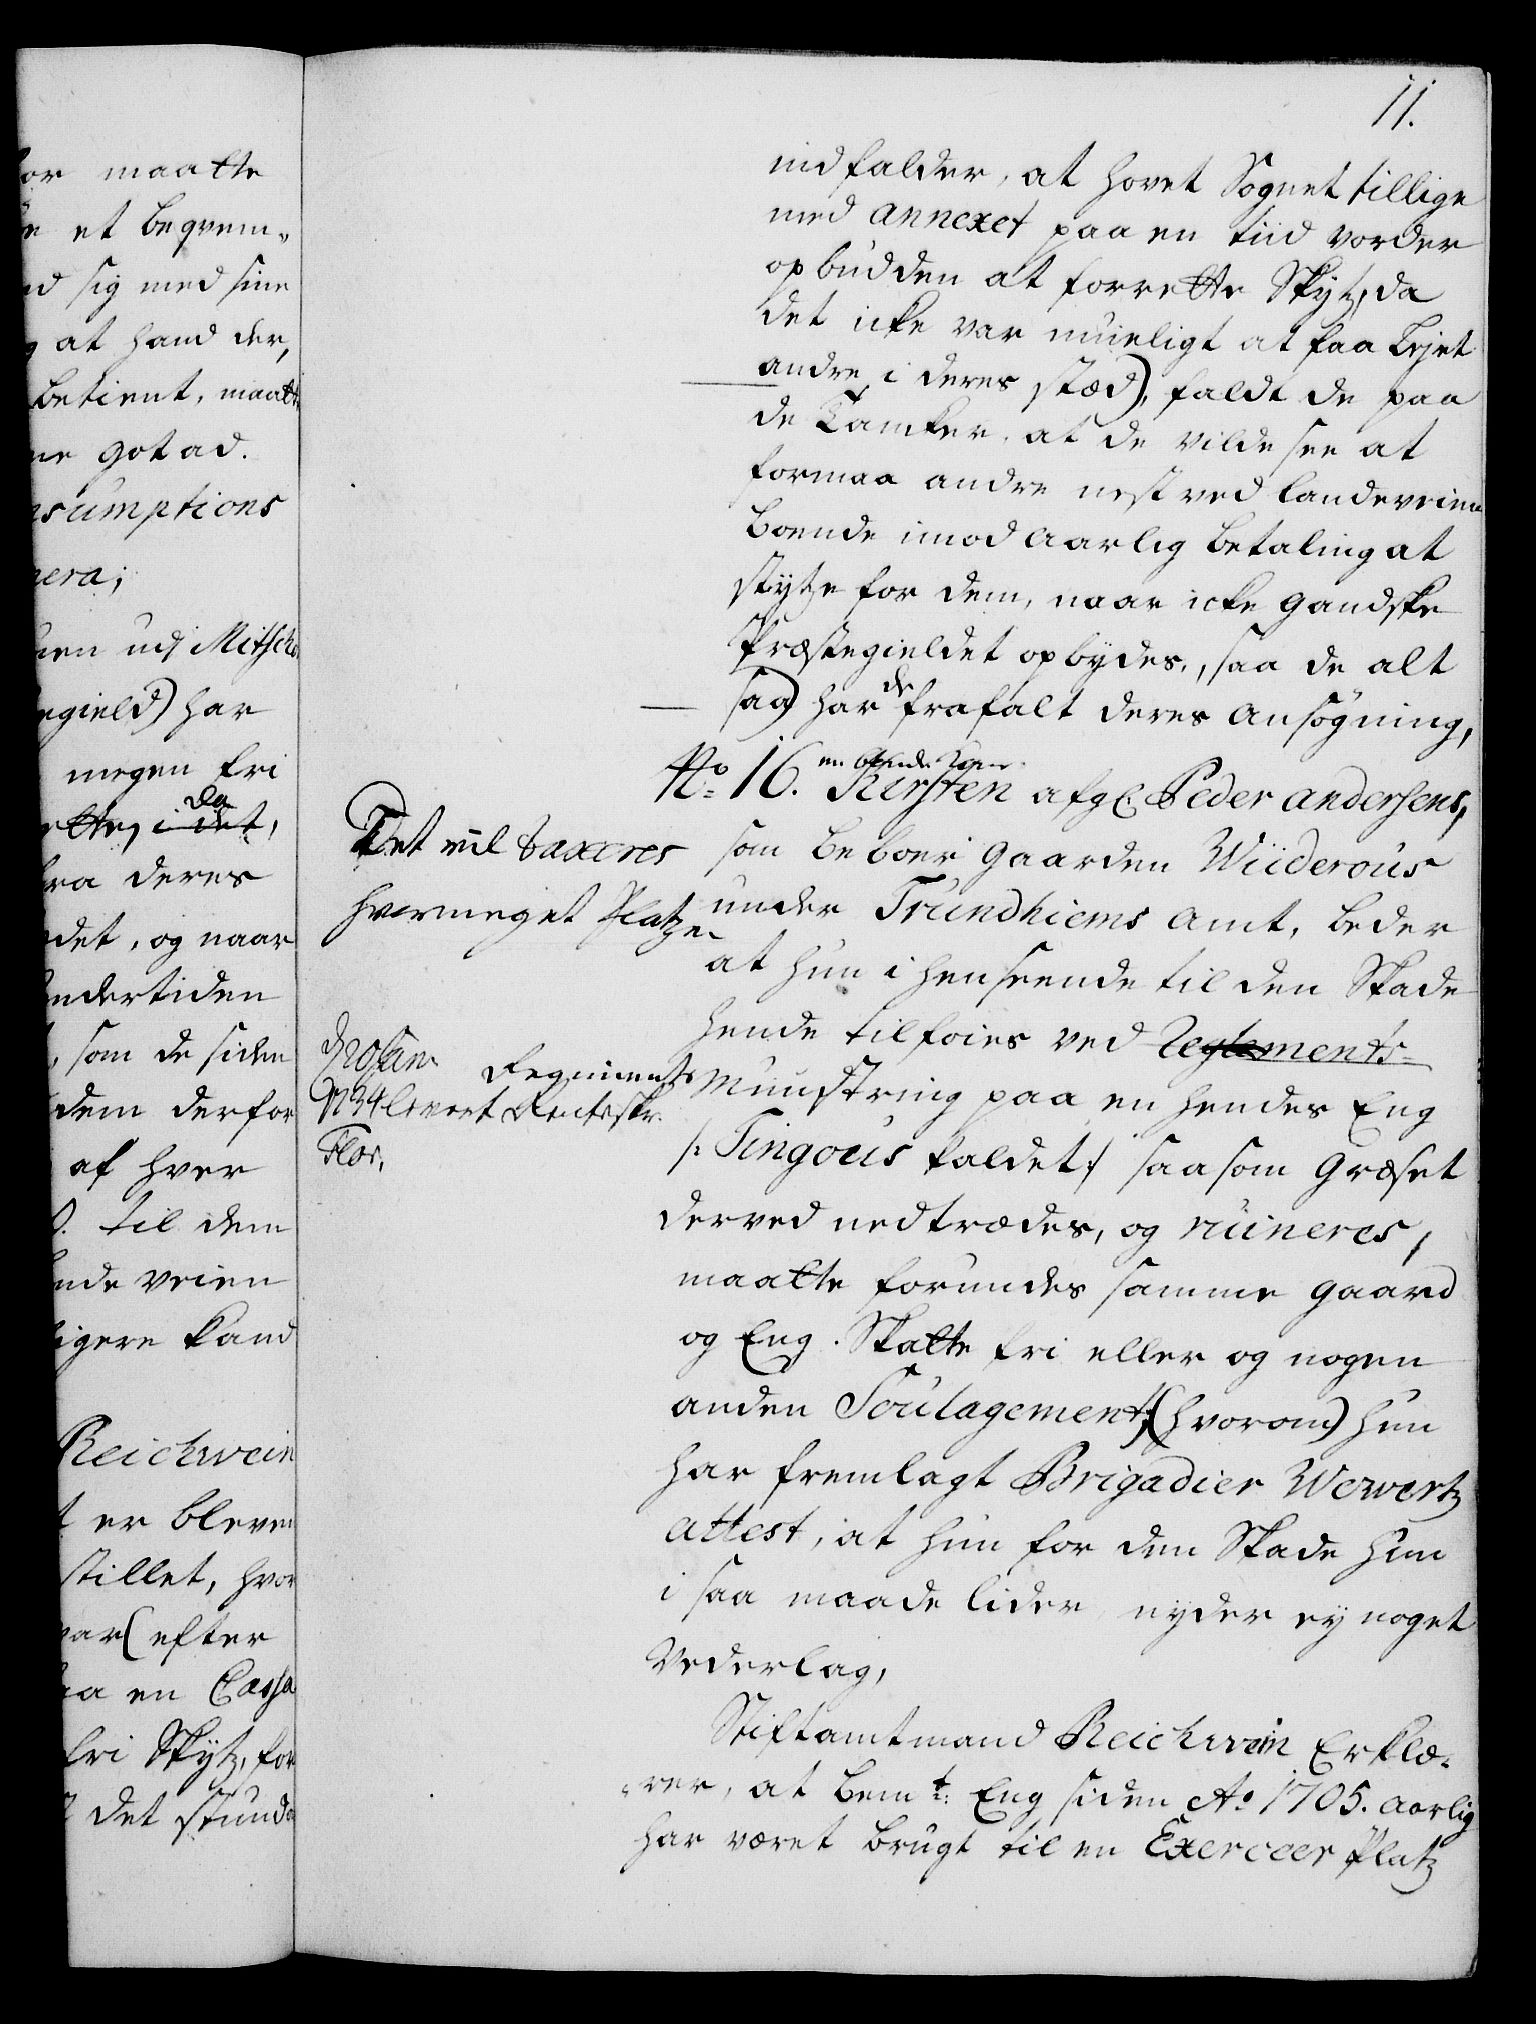 11.
indfalder, at hovet Sognet tillige
med annexet paa en tiid vorder
opbudden at forrette Skytz, da
det icke var mueligt at faa Lejet
andre i deres stæd), faldt de paa
de Tancker, at de vilde see at
formaa andre nest ved landeveien
boende imod aarlig betaling at
skytze for dem, naar icke gandske
Præstegieldet opbydes, saa de alt
saa) har de frafalt deres ansøgning,
No 16. Kirsten afgl. Peder Andersens,
som beboer gaarden Wiiderous
under Trundhiems amt, beder
at hun i henseende til den Skade
hende tilføies ved Reglements-
Munstring paa en hendes Eng
/: Tingous kaldet :/ saasom græset
derved nedtrædes, og ruineres,
maatte forundes samme gaard
og Eng Skatte fri eller og nogen
anden Soulagement, (hvorom) hun
har fremlagt Brigadier Wewertz
attest, at hun for den Skade hun
i saa maade lider nyder ey noget
Vederlag,
Stiftamtmand Reichwein Erklæ-
rer, at bemt: Eng siden Ao 1705. aarlig
har været brugt til en Exerceer Platz
Det vil taxeres
hvormeget Platzen
Regiments
No 34 levert Renteskr.
Flor.
or maatte
et beqvem-
d sig med sine
at hand der,
betient, maatte
ne got ad.
nsumptions
mera;
uen udj Mitsch
egield) har
megen fri
ette, i det, da
fra deres
det, og naar
undertiden
, som de siden
dem derfor
af hver
til dem
nde veien
igere kand
Reichwein
t er bleven
stillet, hvor
var (efter
aa en Cassa
fri Skytz, for
det stund